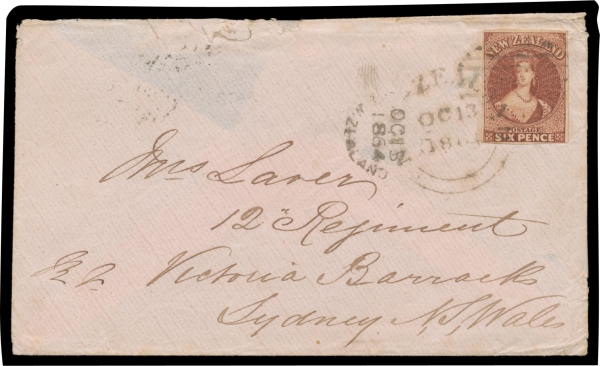 NEW ZEALAND
POSTAGE
SIX PENCE
OC 13
OC 13
1864
Mrs Laver
12th Regiment
Victoria Barracks
Sydney N.S. Wales